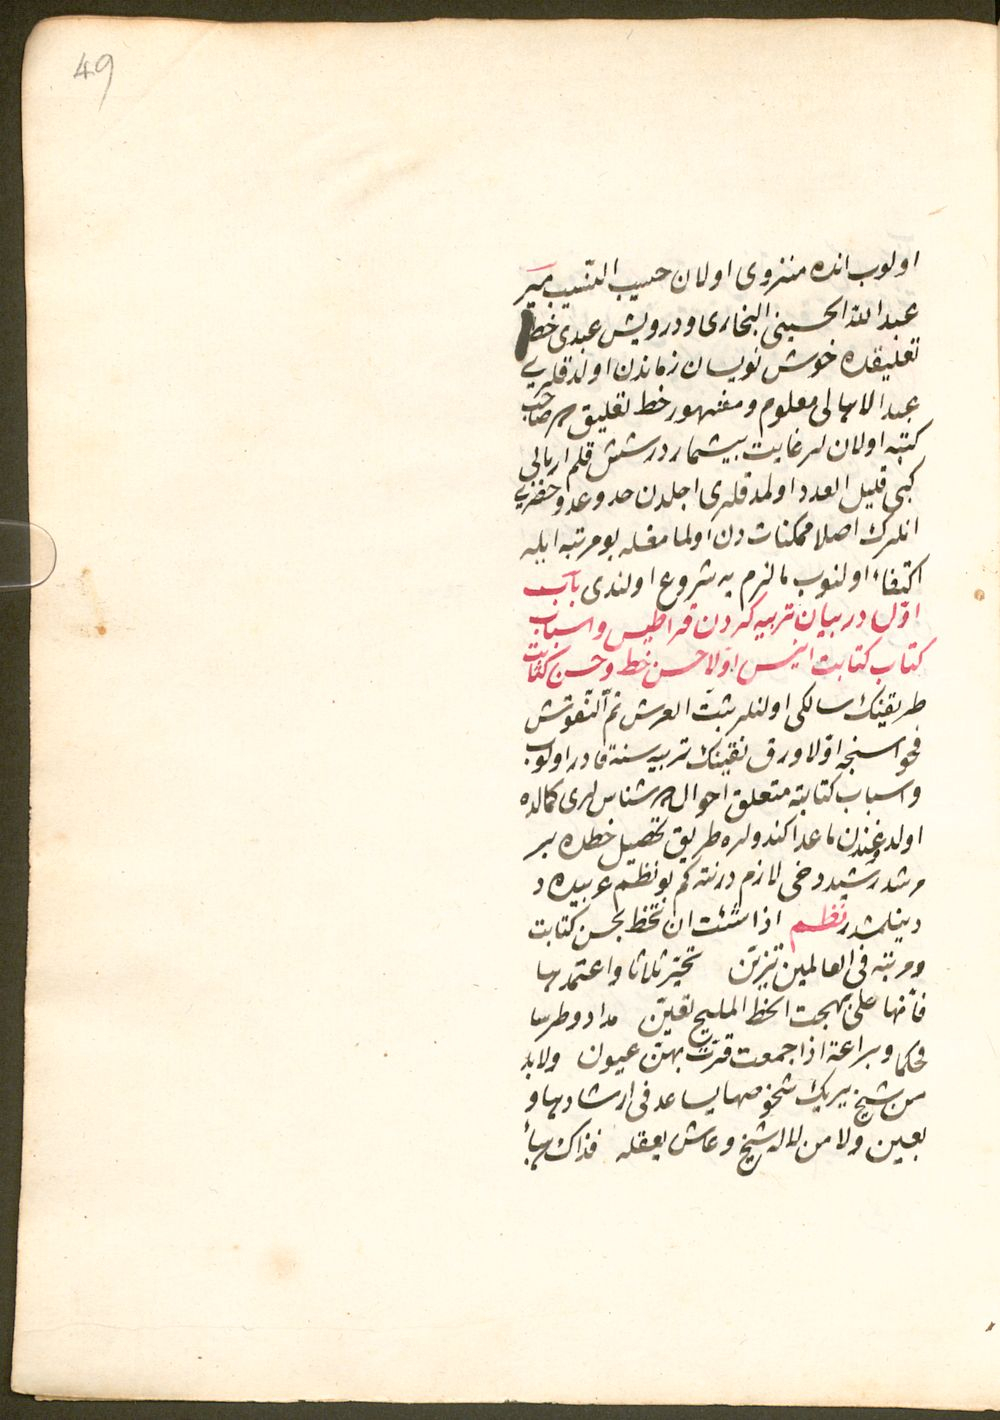 49
اولوب انده منزوی اولان حسیب النسیب میر
عبد اللّه الحسینی البخاری و درویش عبدی خط
تعلیقده خوش نویسان زماندن اولدقلری
عبد الاهالی معلوم و مشهور خط تعلیق صاحب
کتبه اولان لر غایت بیشمار در شش قلم اربابی
کبی قلیل العدد اولمدقلری اجلدن حد و عد و حضری
انلرک اصلا ممکنات دن اولمامغله بو مرتبه ایله
اکتفاء اولنوب مالزم یه شروع اولندی باب
اوّل در بیان تربیه کردن قراطیس و اسباب
کتاب کتابت اینس اوّلا حسن خط و حسن کتابت
طریقینک سالکی اولنلر ثبّت العرش ثمّ النقوش
فحواسنجه اوّلا ورق نقینک تربیه سنه قادر اولوب
و اسباب کتابته متعلق احوال شناس لری کمالده
اولدوغندن ماعدا کندولره طریق تحصیل خطده بر
مرشد رشید دخی لازم درنته کم بو نظم عربیده د
دینلمشدر نظم اذا شئت ان تحظ بحسن کتابت
ومرتبه فی العالمین تزیّن تخیّر ثلاثا واعتمدها
فانّها علی بهجت الخط الملیح تعین مداد وطرسا
محکما وبراعة اذا جمعت قرّت بهنّ عیون ولابد
من شیخ یریک شخوصها یساعد فی ارشادها و
یعین ولا من لاله شیخ وعاش بعقله فذاک هباء